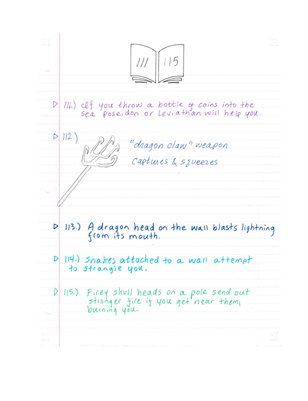 111 115
▷ 111.) If you throw a bottle of coins into the
sea poseidon or Leviathan will help you.
▷ 112.)
"dragon claw" weapon
captures & squeezes
▷ 113.) A dragon head on the wall blasts lightning
from its mouth.
▷ 114.) Snakes attached to a wall attempt
to strangle you.
▷ 115.) Firey skull heads on a pole send out
stronger fire if you get near them,
burning you.